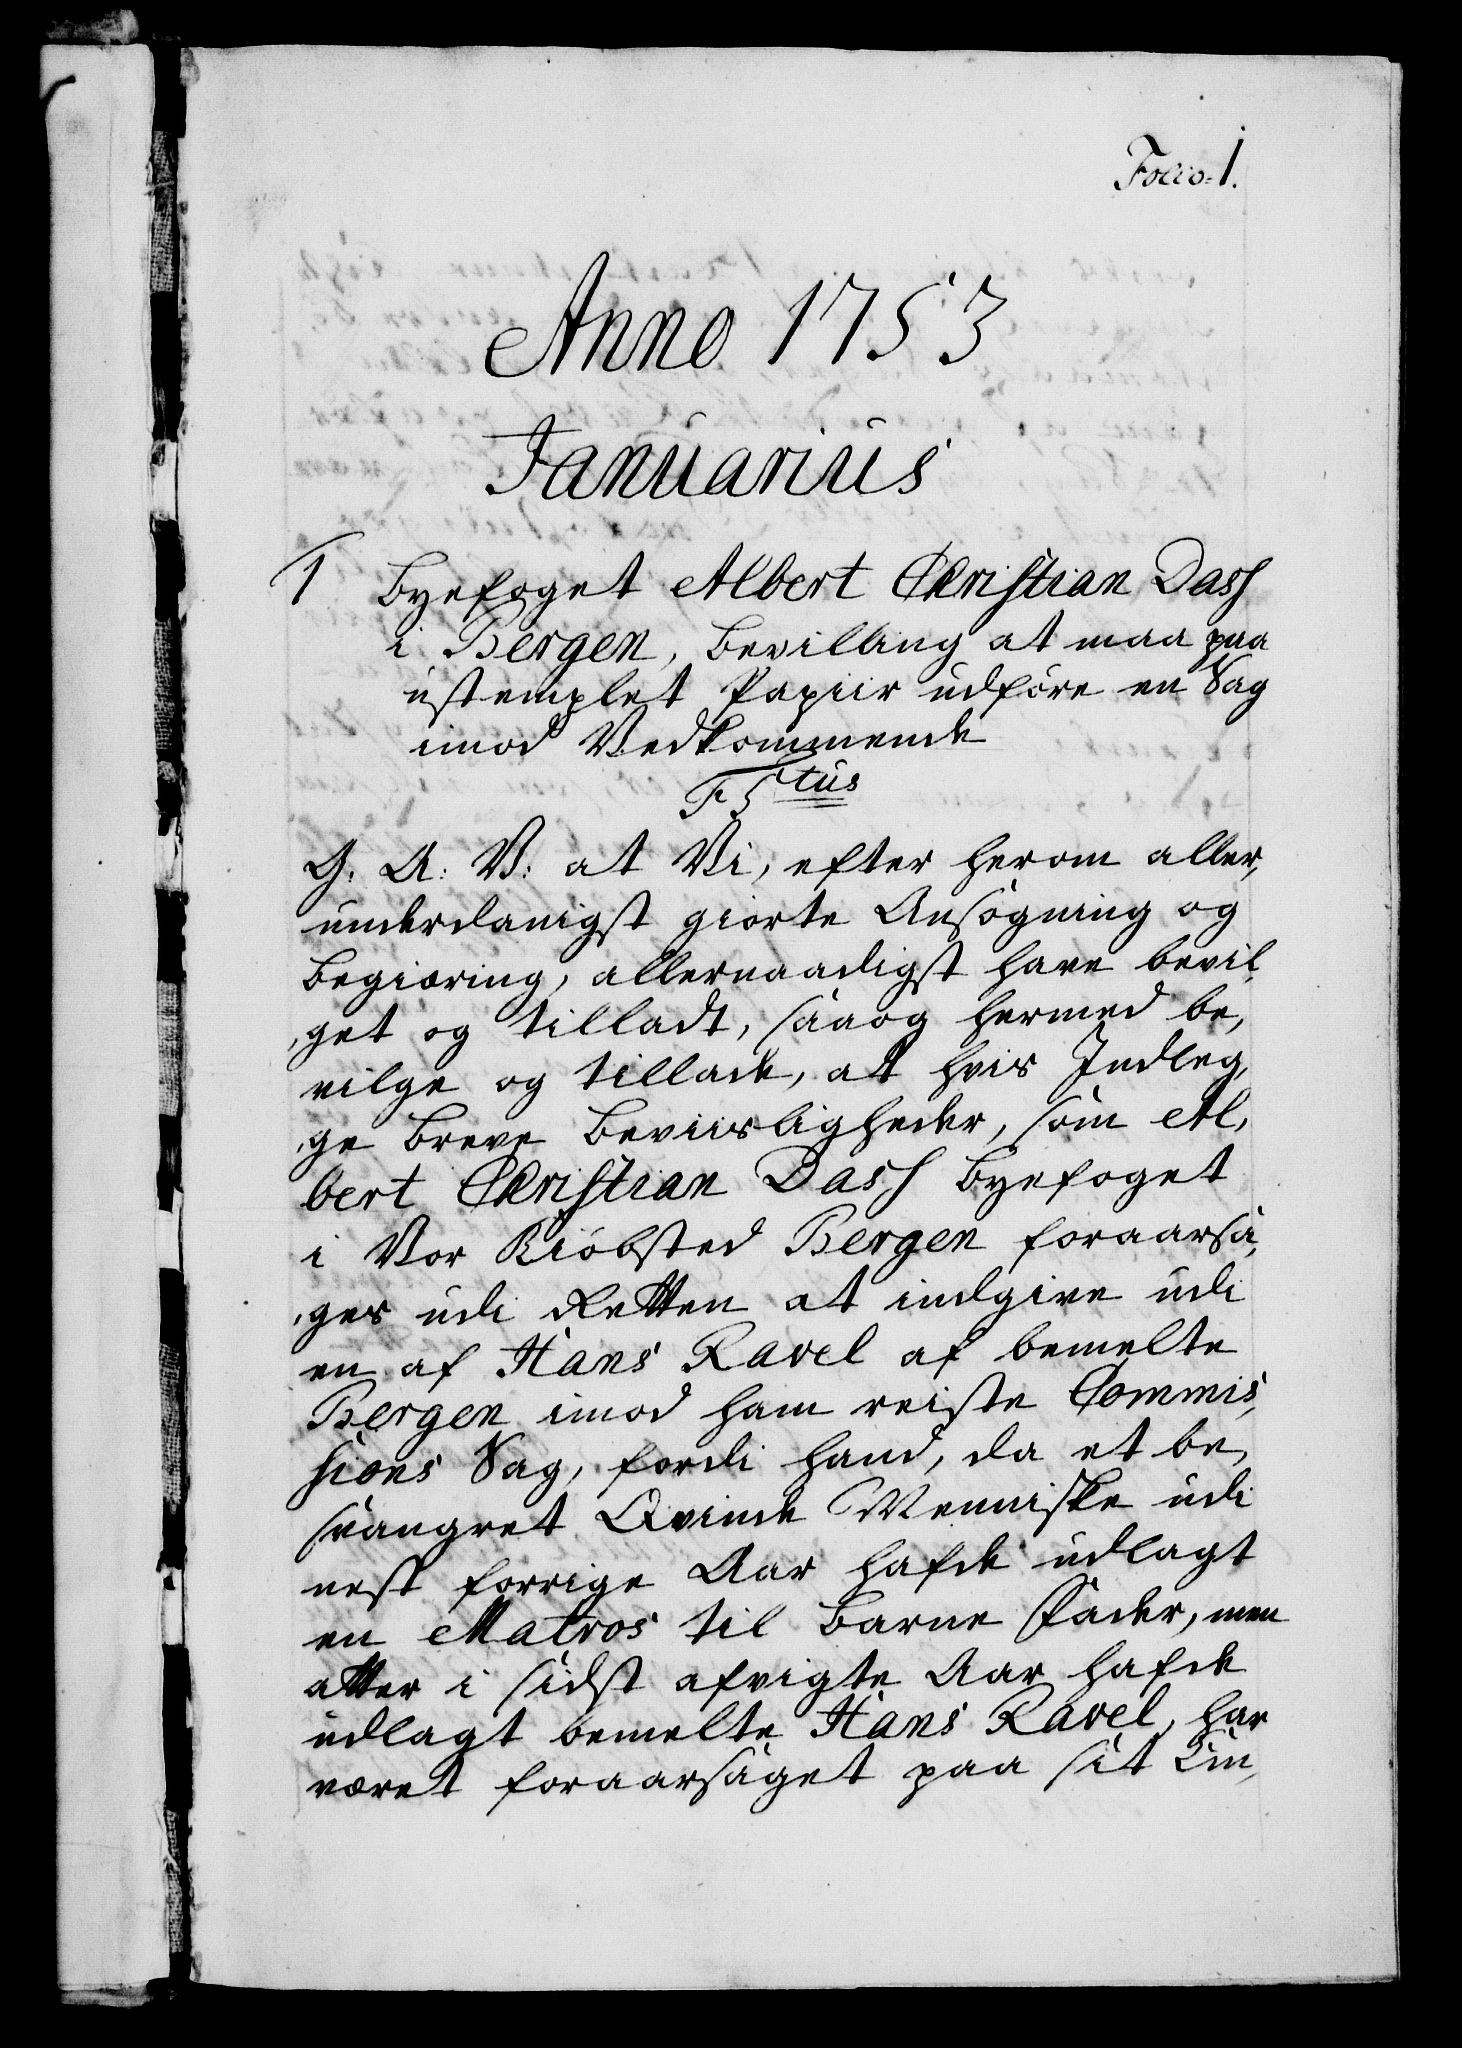 Folio: 1.
Anno 1753
Januarius
1 Byefoget Albert Christian Dass
i Bergen, Bevilling at maa paa
ustemplet Papiir udføre en Sag
imod Vedkommende
F5tus
G. A: V: at Vi, efter herom aller,
underdanigst giorte Ansøgning og
Begiæring, allernaadigst have bevil,
,get og tilladt, saaog hermed be,
vilge og tillade, at hvis Indleg,
,ge Breve Beviisligheder, som Al,
bert Christian Dass Byefoget
i Vor Kiøbsted Bergen foraarsa,
,ges udi Retten at indgive udi
en af Hans Ravel af bemelte
Bergen imod ham reiste Commis,
sions Sag, fordi hand, da et be,
svangret Qvinde Menniske udi
nest forrige Aar hafde udlagt
en Matros til Barne Fader, men
atter i sidst afvigte Aar hafde
udlagt bemelte Hans Ravel, har
været foraarsaget paa sit